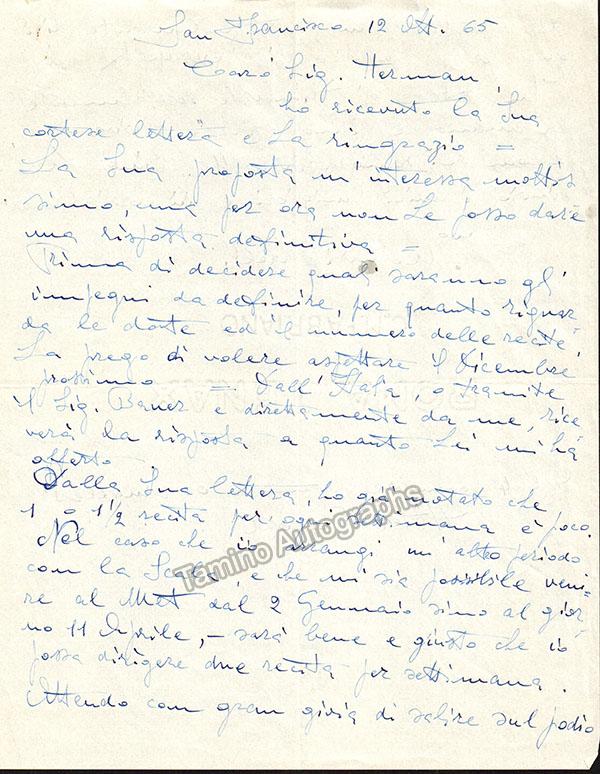 San Francisco 12 Ott. 65
Caro Sig. Herman,
ho ricevuto la Sua
cortese lettera e La ringrazio =
La Sua proposta m'interessa moltis
simo, ma per ora non Le posso dare
una risposta definitiva =
Prima di decidere quali saranno gl'
impegni da definire, per quanto riguar
da le date ed il numero delle recite,
La prego di volere aspettare il Dicembre
prossimo = Dall'Italia, o tramite
il Sig. Bauer e direttamente da me, rice
verà la risposta a quanto Lei mi ha
offerto
Dalla Sua lettera ho già notato che
1 o 1½ recita per ogni settimana è poco.
Nel caso che io arrangi un'altro periodo
con la Scala, e che mi sia possibile veni
re al Met dal 2 Gennaio sino al gior
no 11 Aprile, - sarà bene e giusto che io
possa dirigere due recita per settimana.
Attendo con gran gioia di salire sul podio
Tamino Autographs